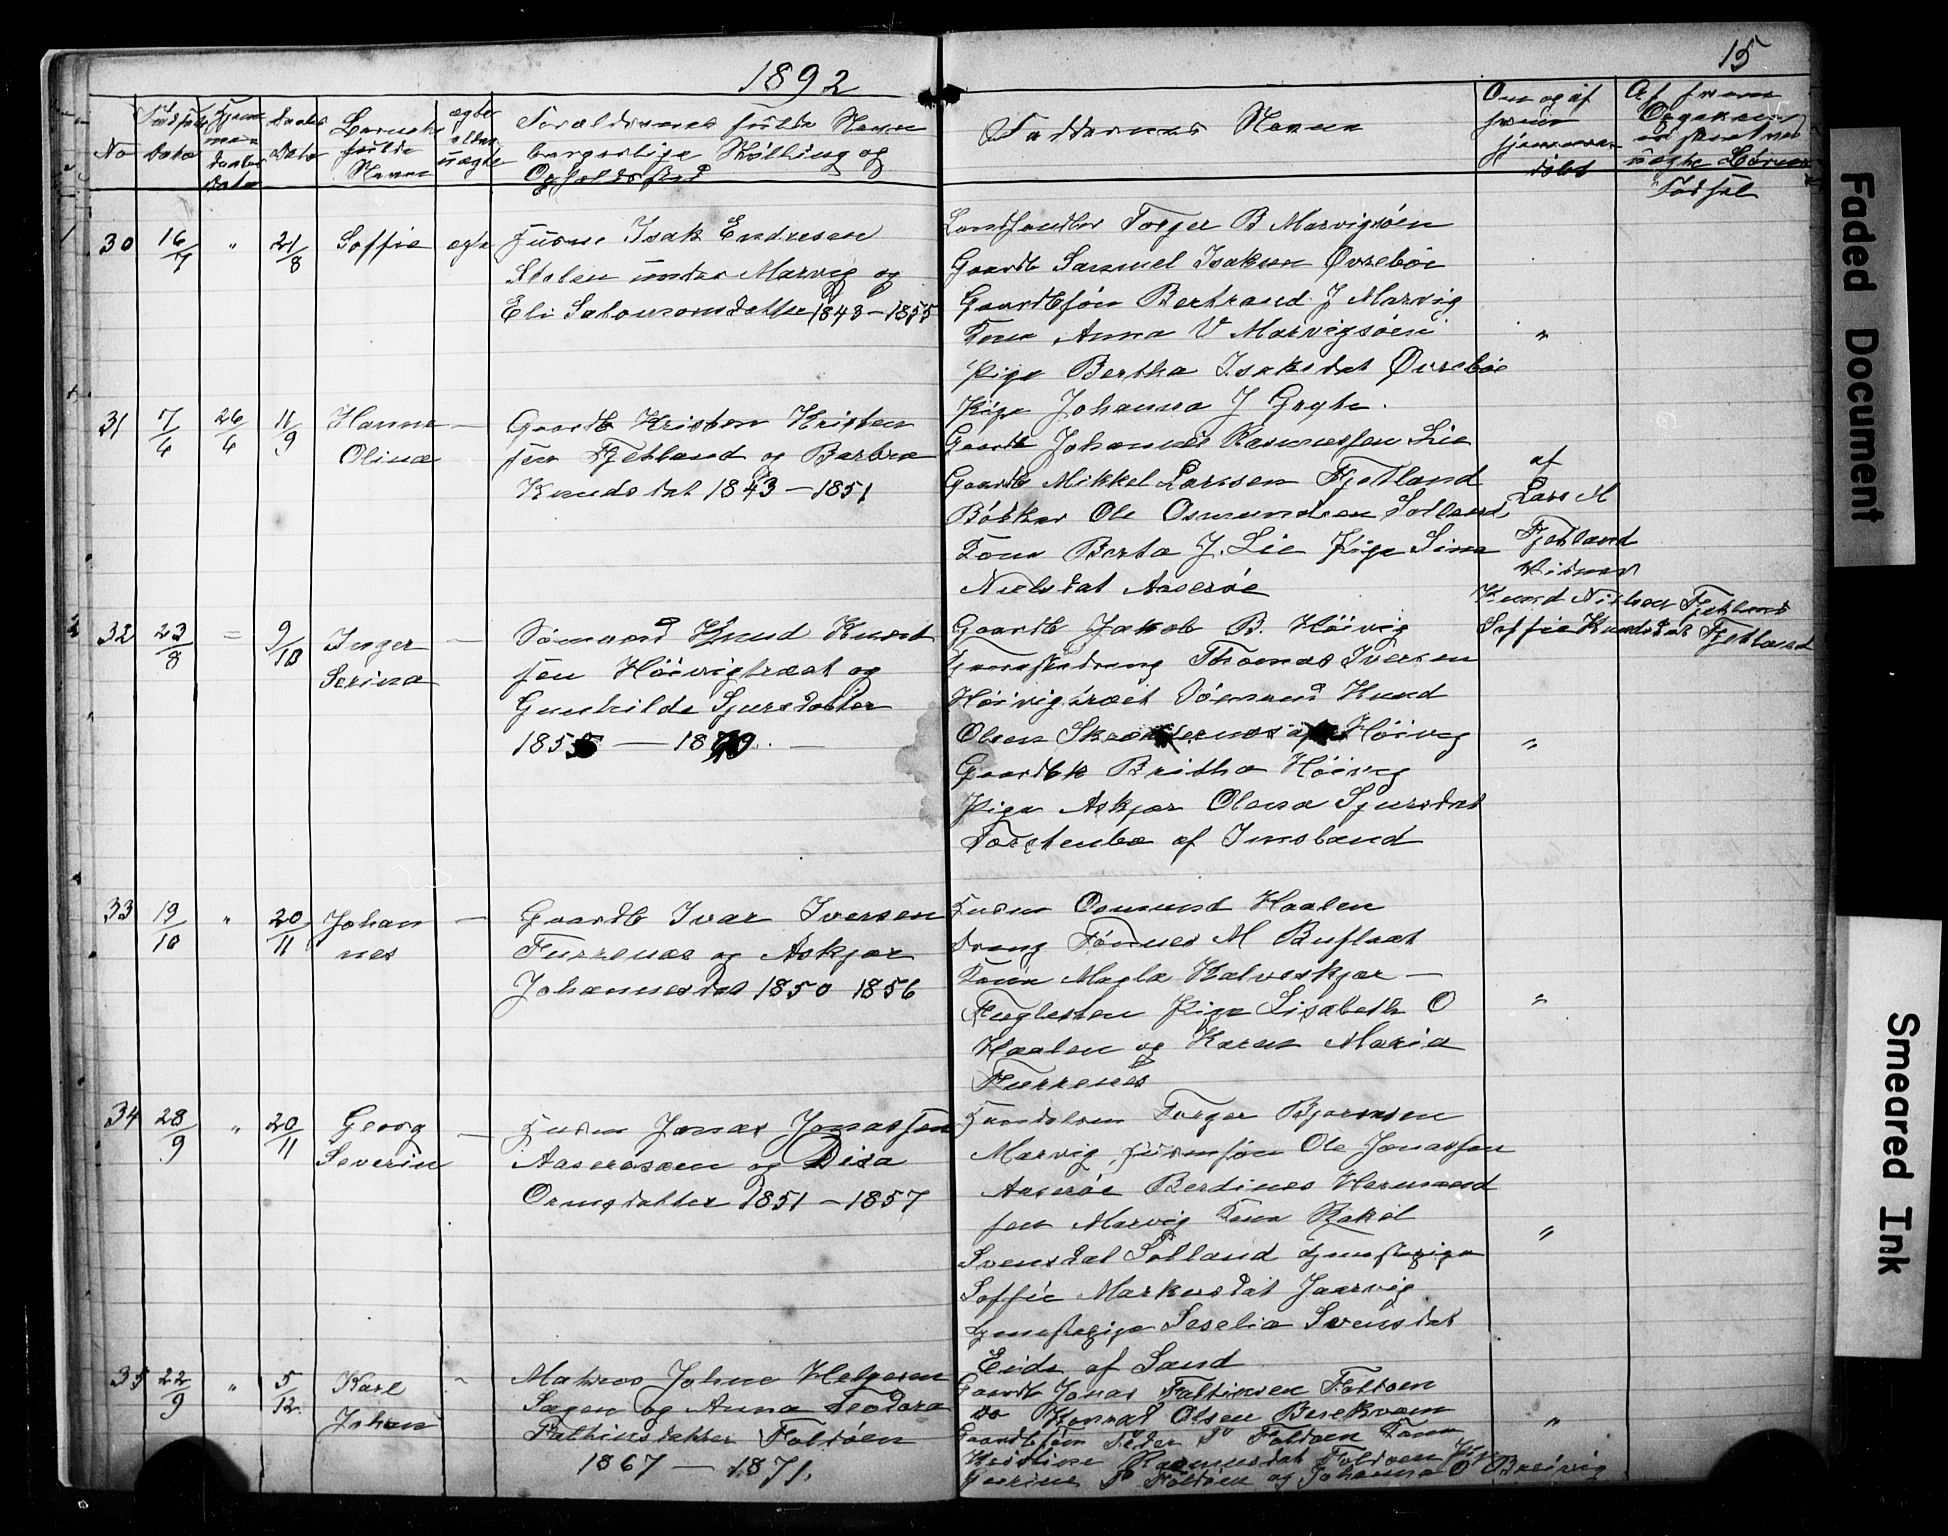 1892
15
No
Dato
Hjemme
daabs
Dato
Daabs
Dato
Barnets
fulde
Navn
ægte
eller
uægte
Forældrenes fulde Navn
borgerlige Stilling og
Opholdssted
Faddernes Navne
Om og af
hvem
hjemme
døbt
Af hvem
uægte Børns
Fødsel
30 16/7 " 21/8 Soffie ægte Huusm Isak Endresen
Stolen under Marvig og
Eli Salomonsdatter 1848 – 1855
Landhandler Torger B Marvigsöen
Gaardb Samuel Isaksen Øvrebøe
Gaardbsøn Bertrand J Marvig
Kone Anna V Marvigsöen
Pige Bertha Isaksdat Øvrebøe
Pige Johanna J Gryte.
"
31 7/6 26/6 11/9 Hanne
Olina
— Gaardb Kristen Kristen
sen Fjetland og Barbra
Knudsdat 1843 – 1851
Gaardb Johannes Rasmussen Lie
Gaardb Mikkel Larsen Fjetland
Bödker Ole Osmundsen Solland
Kone Berta J. Lie Pige Sina
Nielsdat Aaserøe
af
Lars M
Fjetland
Vidner
Knud Nielsen Fjetland
Soffie Knudsdat Fjetland
32 23/8 = 9/10 Inger
Serina
— Sömand Knud Knud
sen Höivigtræet og
Gunhilde Sjursdatter
1855 — 1870. —
Gaardb Jakob B. Höivig
Thomas Iversen
Höivigtræet Sömand Knud
Olsen Höivig
Gaardbk Britha Höivig
Pige Askjær Olena Sjursdat
Torstenbø af Imsland
"
33 19/10 " 20/11 Johan
nes
— Gaardb Ivar Iversen
Furrenæs og Askjær
Johannesdat 1850 1856
Husm Osmund Haalen
Dreng Tönnes M Buflaat
Kone Magla Kalveskjær —
Fuglesten Pige Lisabeth O
Haalen og Karen Maria
Furrenes
"
34 28/9 " 20/11 Georg
Severin
— Husm Jonas Jonassen
Aaserøsæen og Disa
Ormsdatter 1851 – 1857
Torger Bjørnsen
Marvig Husmsøn Ole Jonassen
Aaserøe Berdines Hermand
sen Marvig Kone Rakel
Svensdat Solland Tjenestepige
Soffie Markusdat Jaarvig
Tjenestepige Seselia Svensdat
Eide af Sand
"
35 22/9 " 5/12 Karl
Johan
– Matros Johne Helgesen
Sagen og Anna Teodora
Faltinsdatter Foldöen
1867 — 1871.
Gaardb Jonas Faltinsen Foldöen
do Konrad Olsen Berekvam
Gaardbsøn Peder P Foldöen Kone
Kristine Rasmusdat Foldöen Pige
Geerine P Foldöen og Johanna O Breivig
"
Faded Document
Smeared Ink